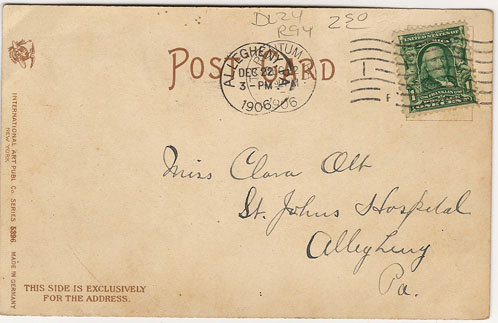 DL24
R94
250
POST CARD
ALLEGHENY, PA.
TARENTUM
DEC 22
3-PM
1906
1906
UNITED STATES
FRANKLIN
INTERNATIONAL ART PUBL. CO. SERIES 5396 MADE IN GERMANY
NEW YORK.
Miss Clara Ott
St. Johns Hospital
Allegheny
Pa.
THIS SIDE IS EXCLUSIVELY
FOR THE ADDRESS.